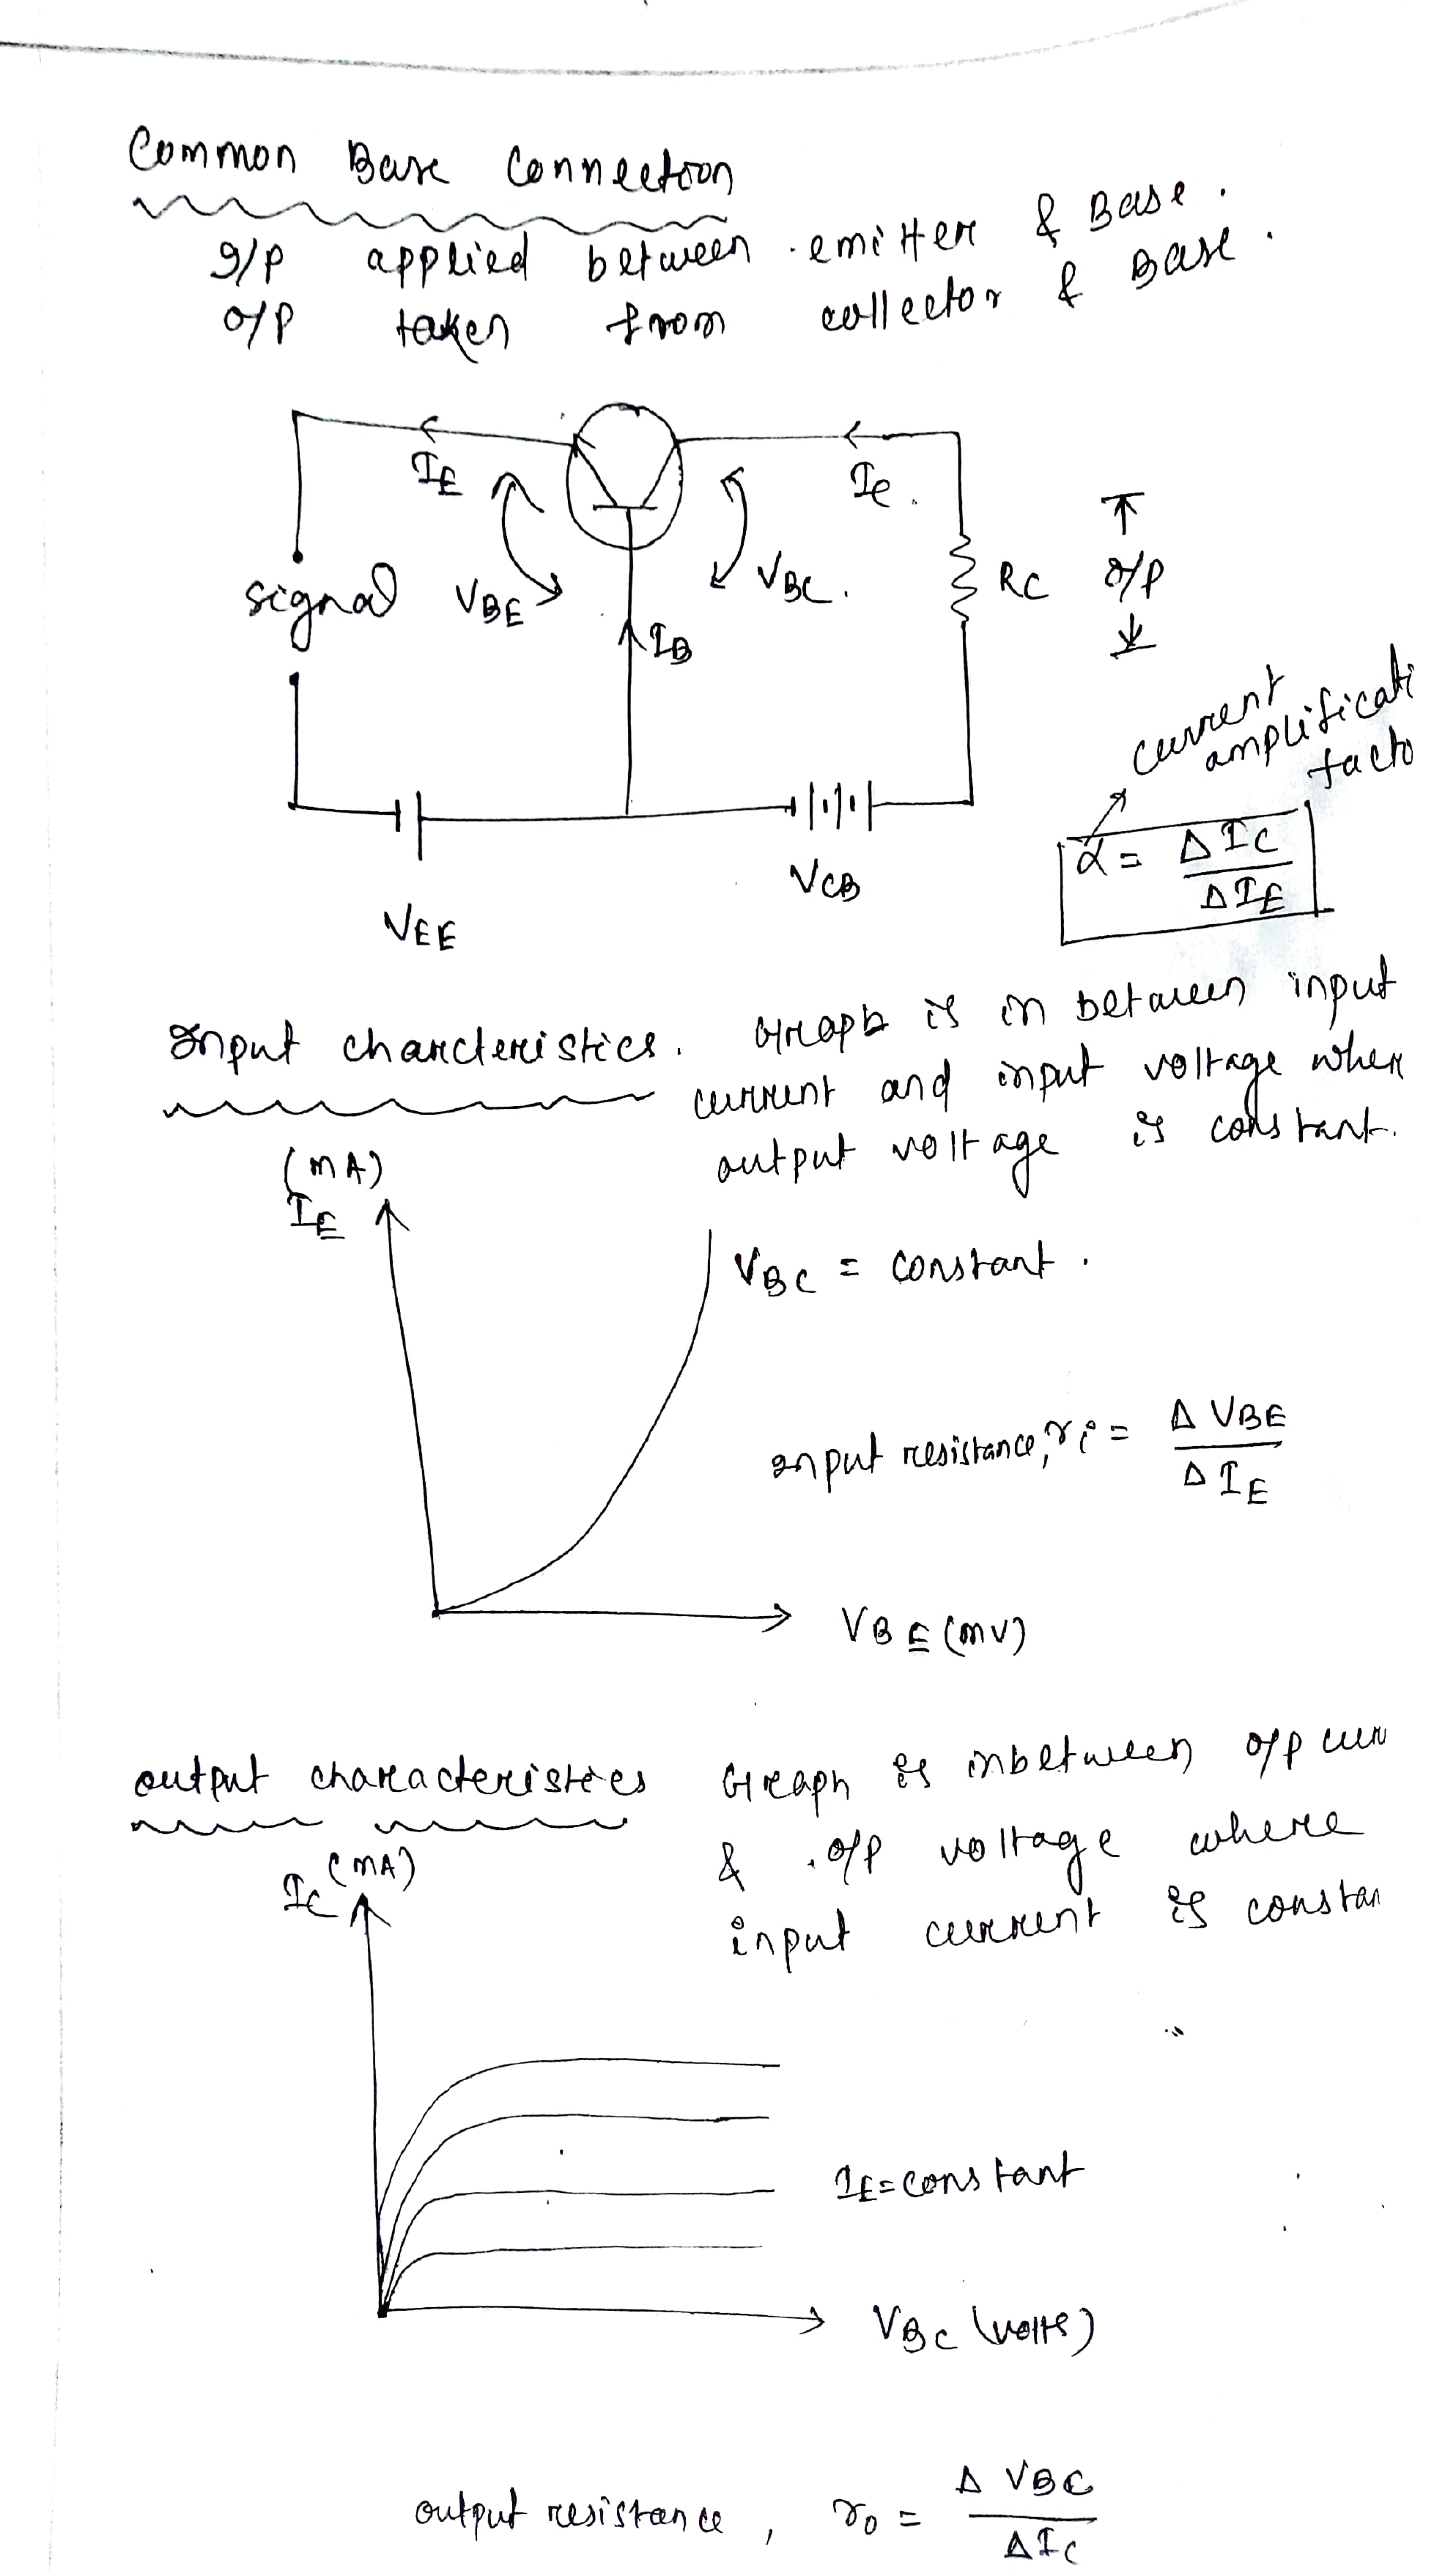 Common Base Connection
I/P applied between emitter & Base.
O/P taken from collector & Base.
IE
IC.
signal
VBE
VBC.
IB
RC
O/P
current amplificati
facto
α = ΔIC / ΔIE
VCB
VEE
Input charcteristics. Graph is in between input
current and input voltage where
output voltage is constant.
(mA)
IE
VBC = constant.
Input resistance, ri = ΔVBE / ΔIE
VBE (mV)
output characteristics Graph is inbetween o/p curr
& o/p voltage where
input current is constan
IC (mA)
IE = constant
VBC (volts)
output resistance, ro = ΔVBC / ΔIC